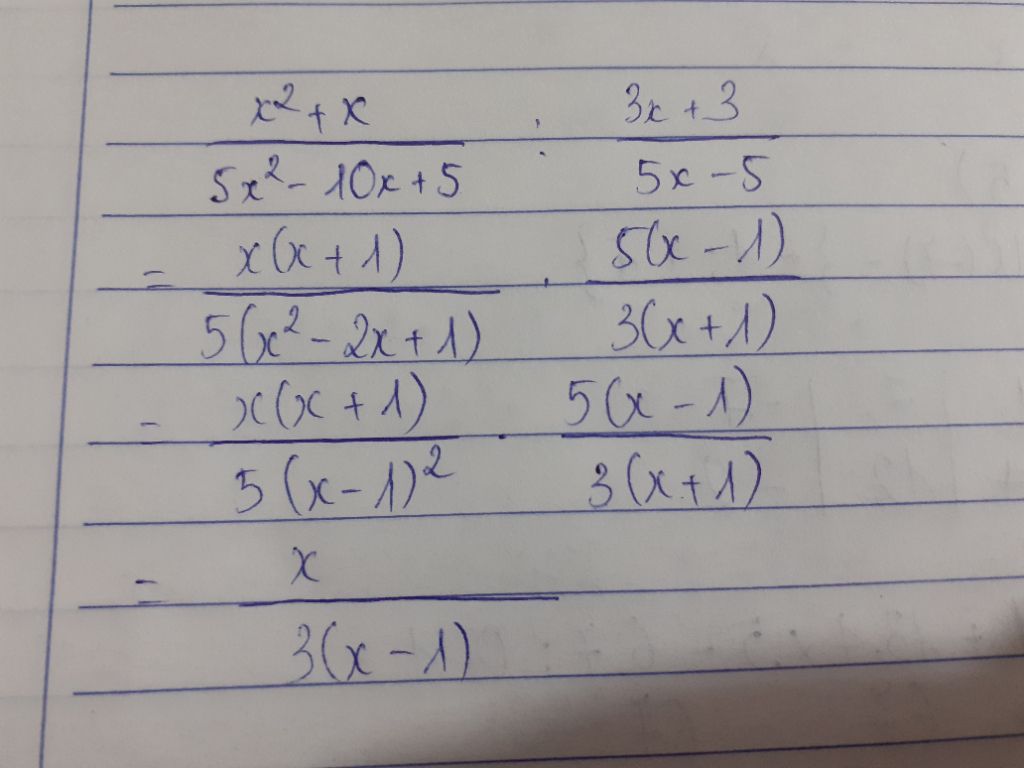 x² + x / 5x² - 10x + 5 : 3x + 3 / 5x - 5
= x(x + 1) / 5(x² - 2x + 1) . 5(x - 1) / 3(x + 1)
= x(x + 1) / 5(x - 1)² . 5(x - 1) / 3(x + 1)
= x / 3(x - 1)